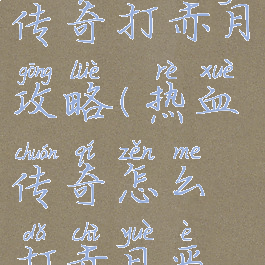 传奇打赤月
gōng lüè rè xuè
攻略(热血
chuán qí zěn me
传奇怎么
dǎ chì yuè è
打赤月恶